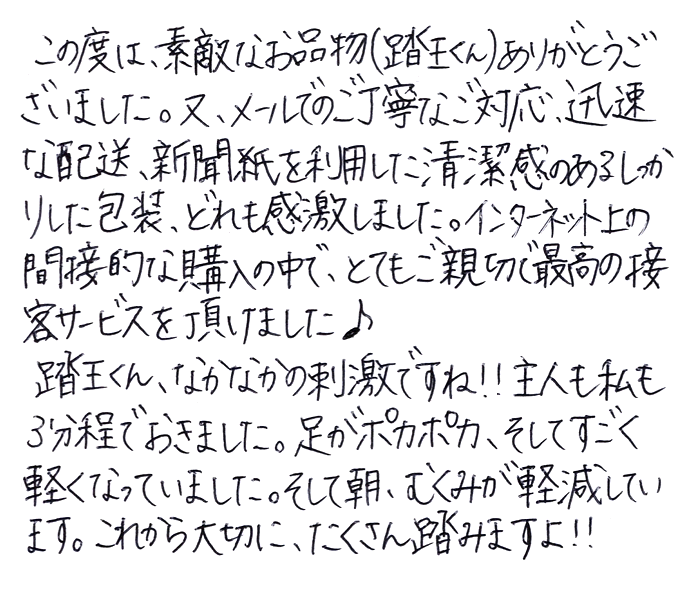 この度は、素敵なお品物(踏王くん)ありがとうご
ざいました。又、メールでのご丁寧なご対応、迅速
な配送、新聞紙を利用した清潔感のあるしっか
りした包装、どれも感激しました。インターネット上の
間接的な購入の中で、とてもご親切で最高の接
客サービスを頂けました♪
踏王くん、なかなかの刺激ですね!!主人も私も
3分程でおきました。足がポカポカ、そしてすごく
軽くなっていました。そして朝、むくみが軽減してい
ます。これから大切に、たくさん踏みますよ!!